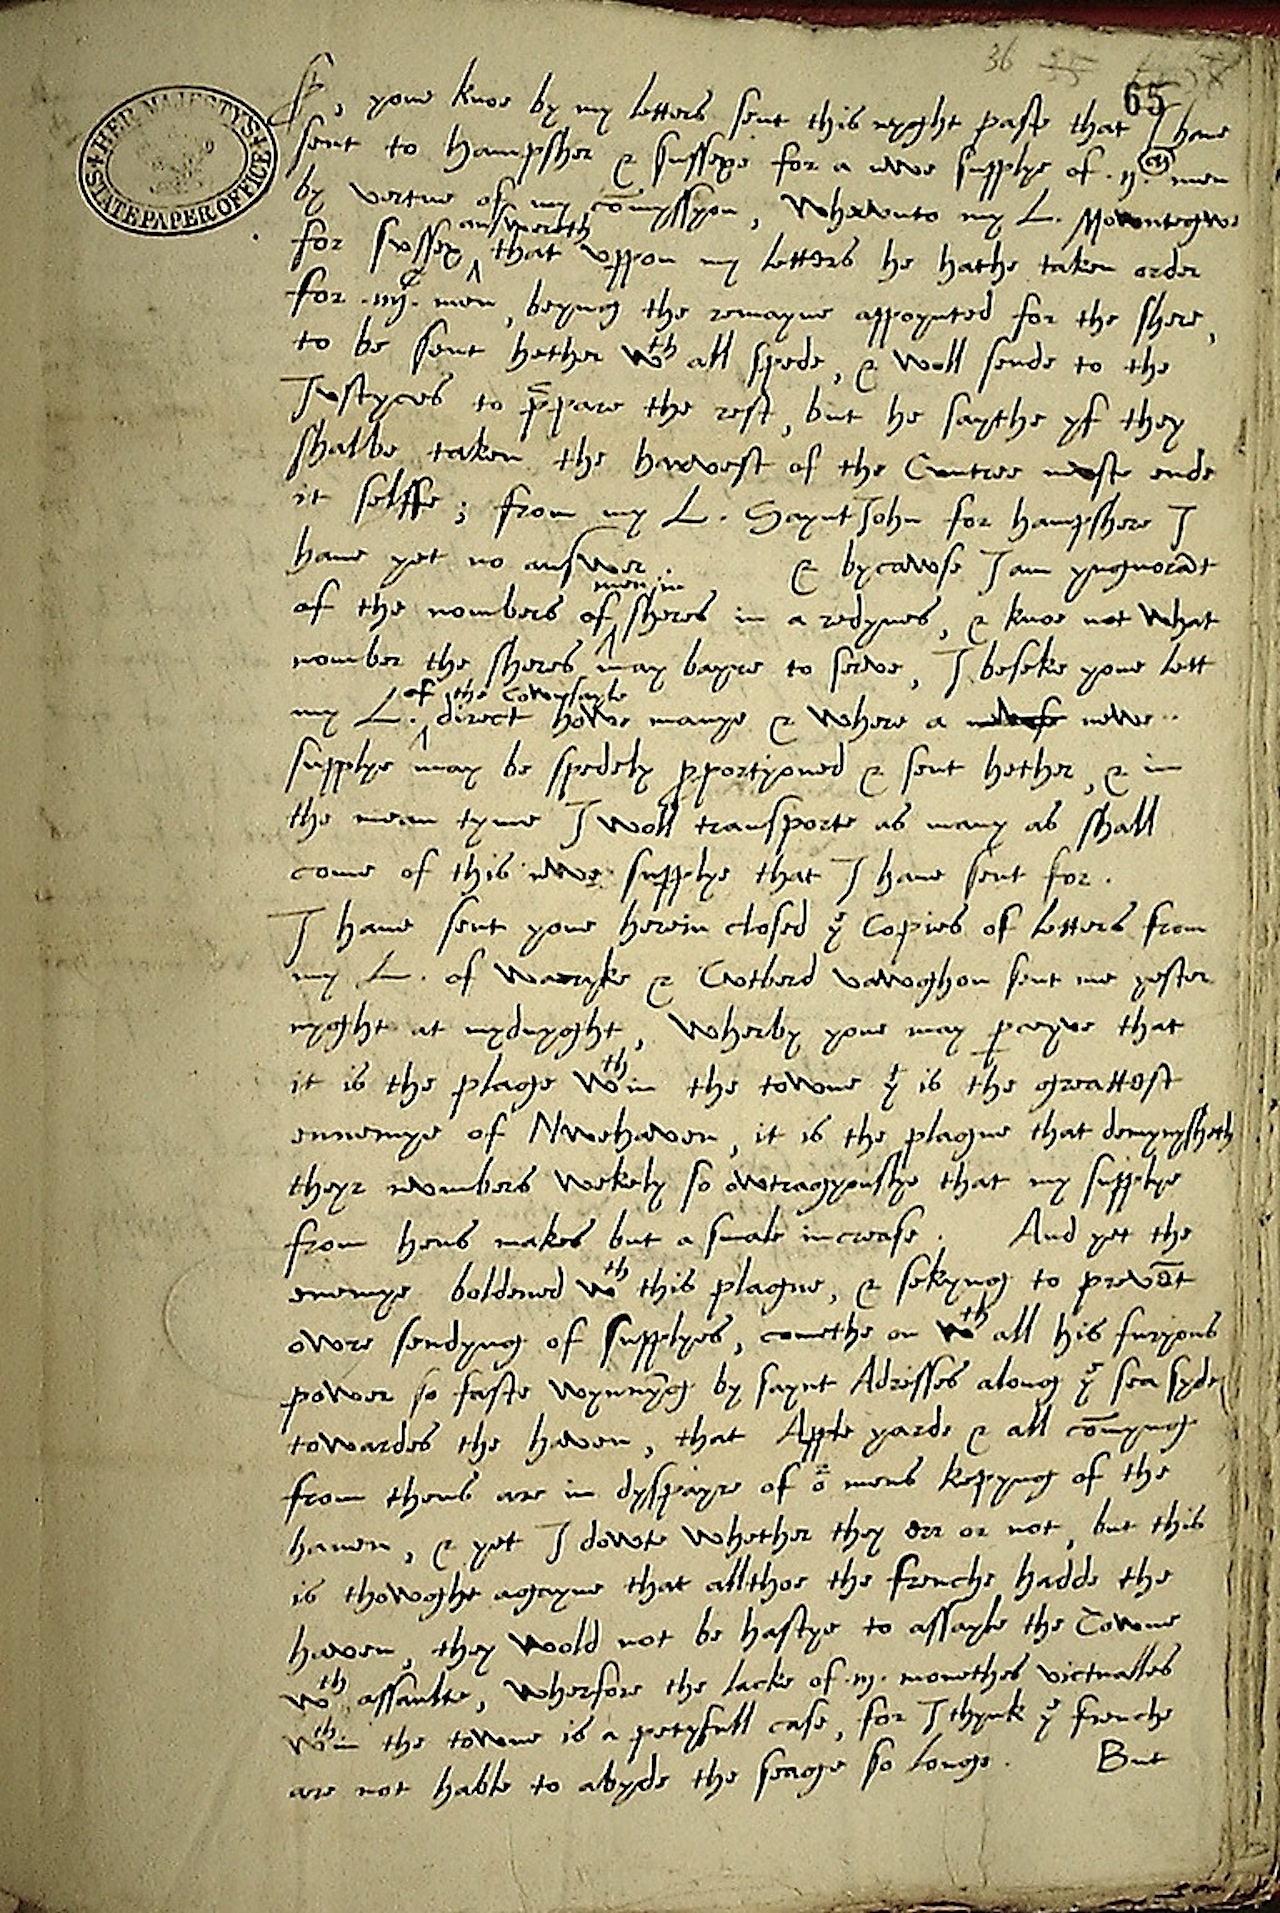 36
65
HER MAJESTY'S STATE PAPER OFFICE
Sr, youe knoe by my letters sent this nyght paste that I have
sent to Hampsher & Sussexe for a nwe supplye of .ij. M men
by vertue of my comyssyon, Wherunto my L. Mowntegwe
for Sussex answereth that uppon my letters he hathe taken order
for .iiij. C men, beyng the remayne appoynted for the shere,
to be sent hether wth all spede, & woll sende to the
Justyces to ppare the rest, but he saythe yf they
shalbe taken the harvest of the Cuntree moste ende
it selffe; from my L. Saynt John for hampshere I
have yet no answer. & bycawse I am yngnorāt
of the nombers of men in sheres in a redynes, & knoe not what
nomber the sheres may bayre to serve, I beseke youe lett
my L. of the cownsayle direct howe manye & where a newe
supplye may be spedely pportyoned & sent hether, & in
the mean tyme I woll transporte as many as shall
come of this nwe supplye that I have sent for.
I have sent youe herein closed ye Copies of letters from
my L. of Warryke & Cutberd vawghon sent me yester
nyght at mydnyght, wherby youe may pceyve that
it is the plage wthin the towne yt is the greattest
ennemye of Nwehaven, it is the plague that demynysheth
theyr numbers wekely so owtragyouslye that my supplye
from hens makes but a smale increase. And yet the
enemye boldened wth this plague, & sekyng to prevēt
owre sendyng of supplyes, comethe on wth all his furyous
power so faste wynnyng by saynt Adresses along ye sea syde
towardes the haven, that Apple yarde & all cōmyng
from thens are in dyspayre of or mens kepyng of the
haven, & yet I dowte whether they err or not, but this
is thowght agayne that allthoe the frenche hadde the
haven, they wold not be hastye to assayle the Towne
wth assaulte, wherfore the lacke of .iij. monethes victualles
wthin the towne is a petyfull case, for I thynk ye frenche
are not hable to abyde the seage so longe. But